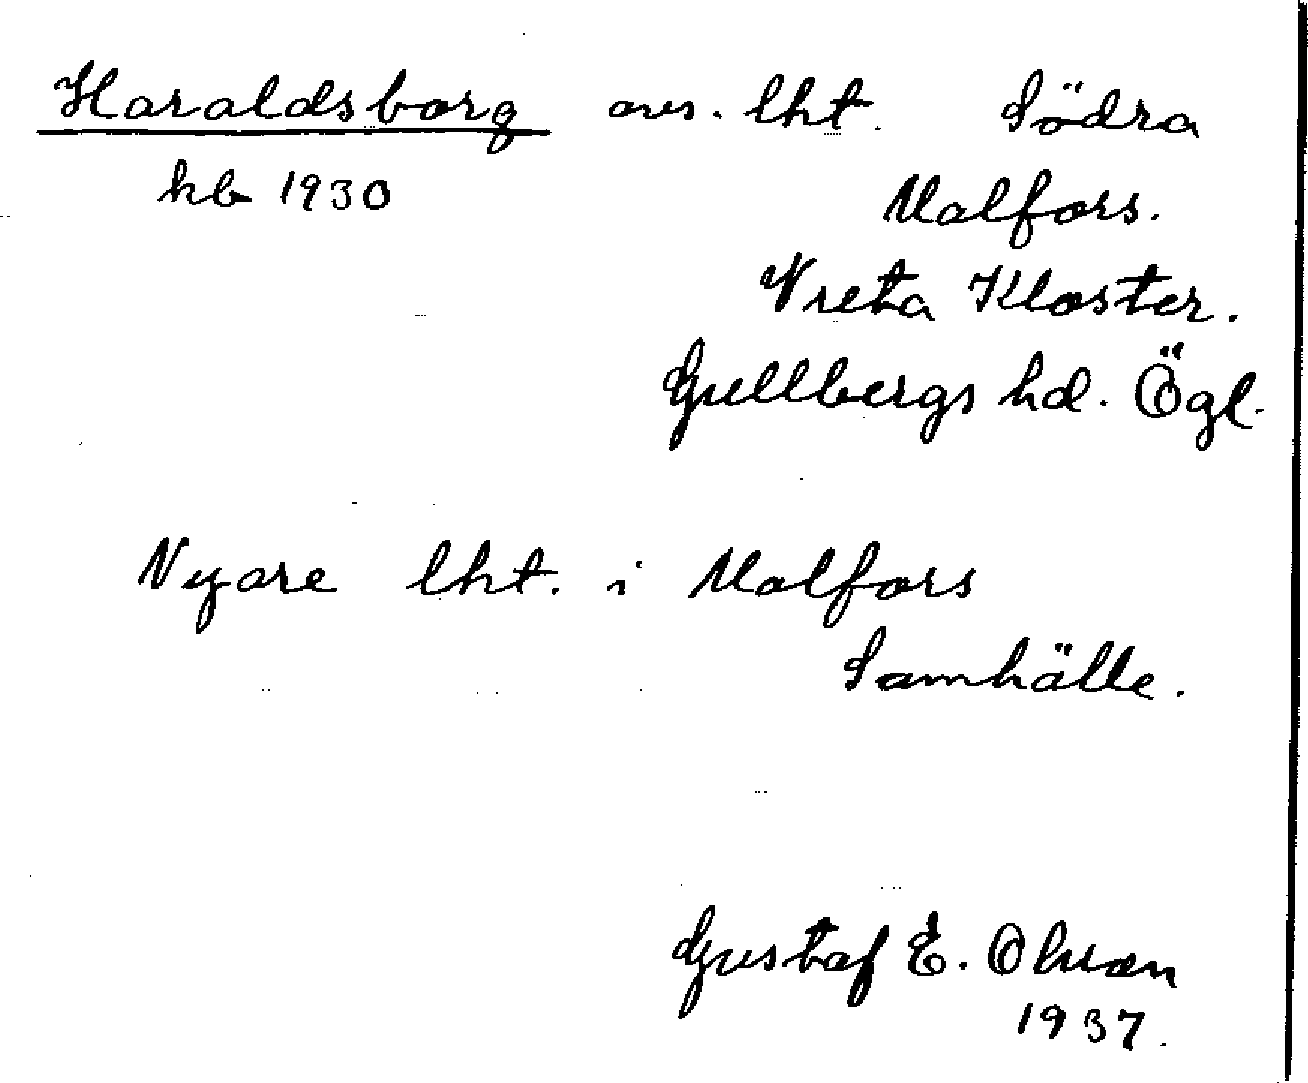 Haraldsborg avs. lht. Södra
kb 1930 Malfors.
Vreta Kloster.
Gullbergs hd. Ögl.
Nyare lht. i Malfors
Samhälle.
Gustaf E. Olsson
1937.